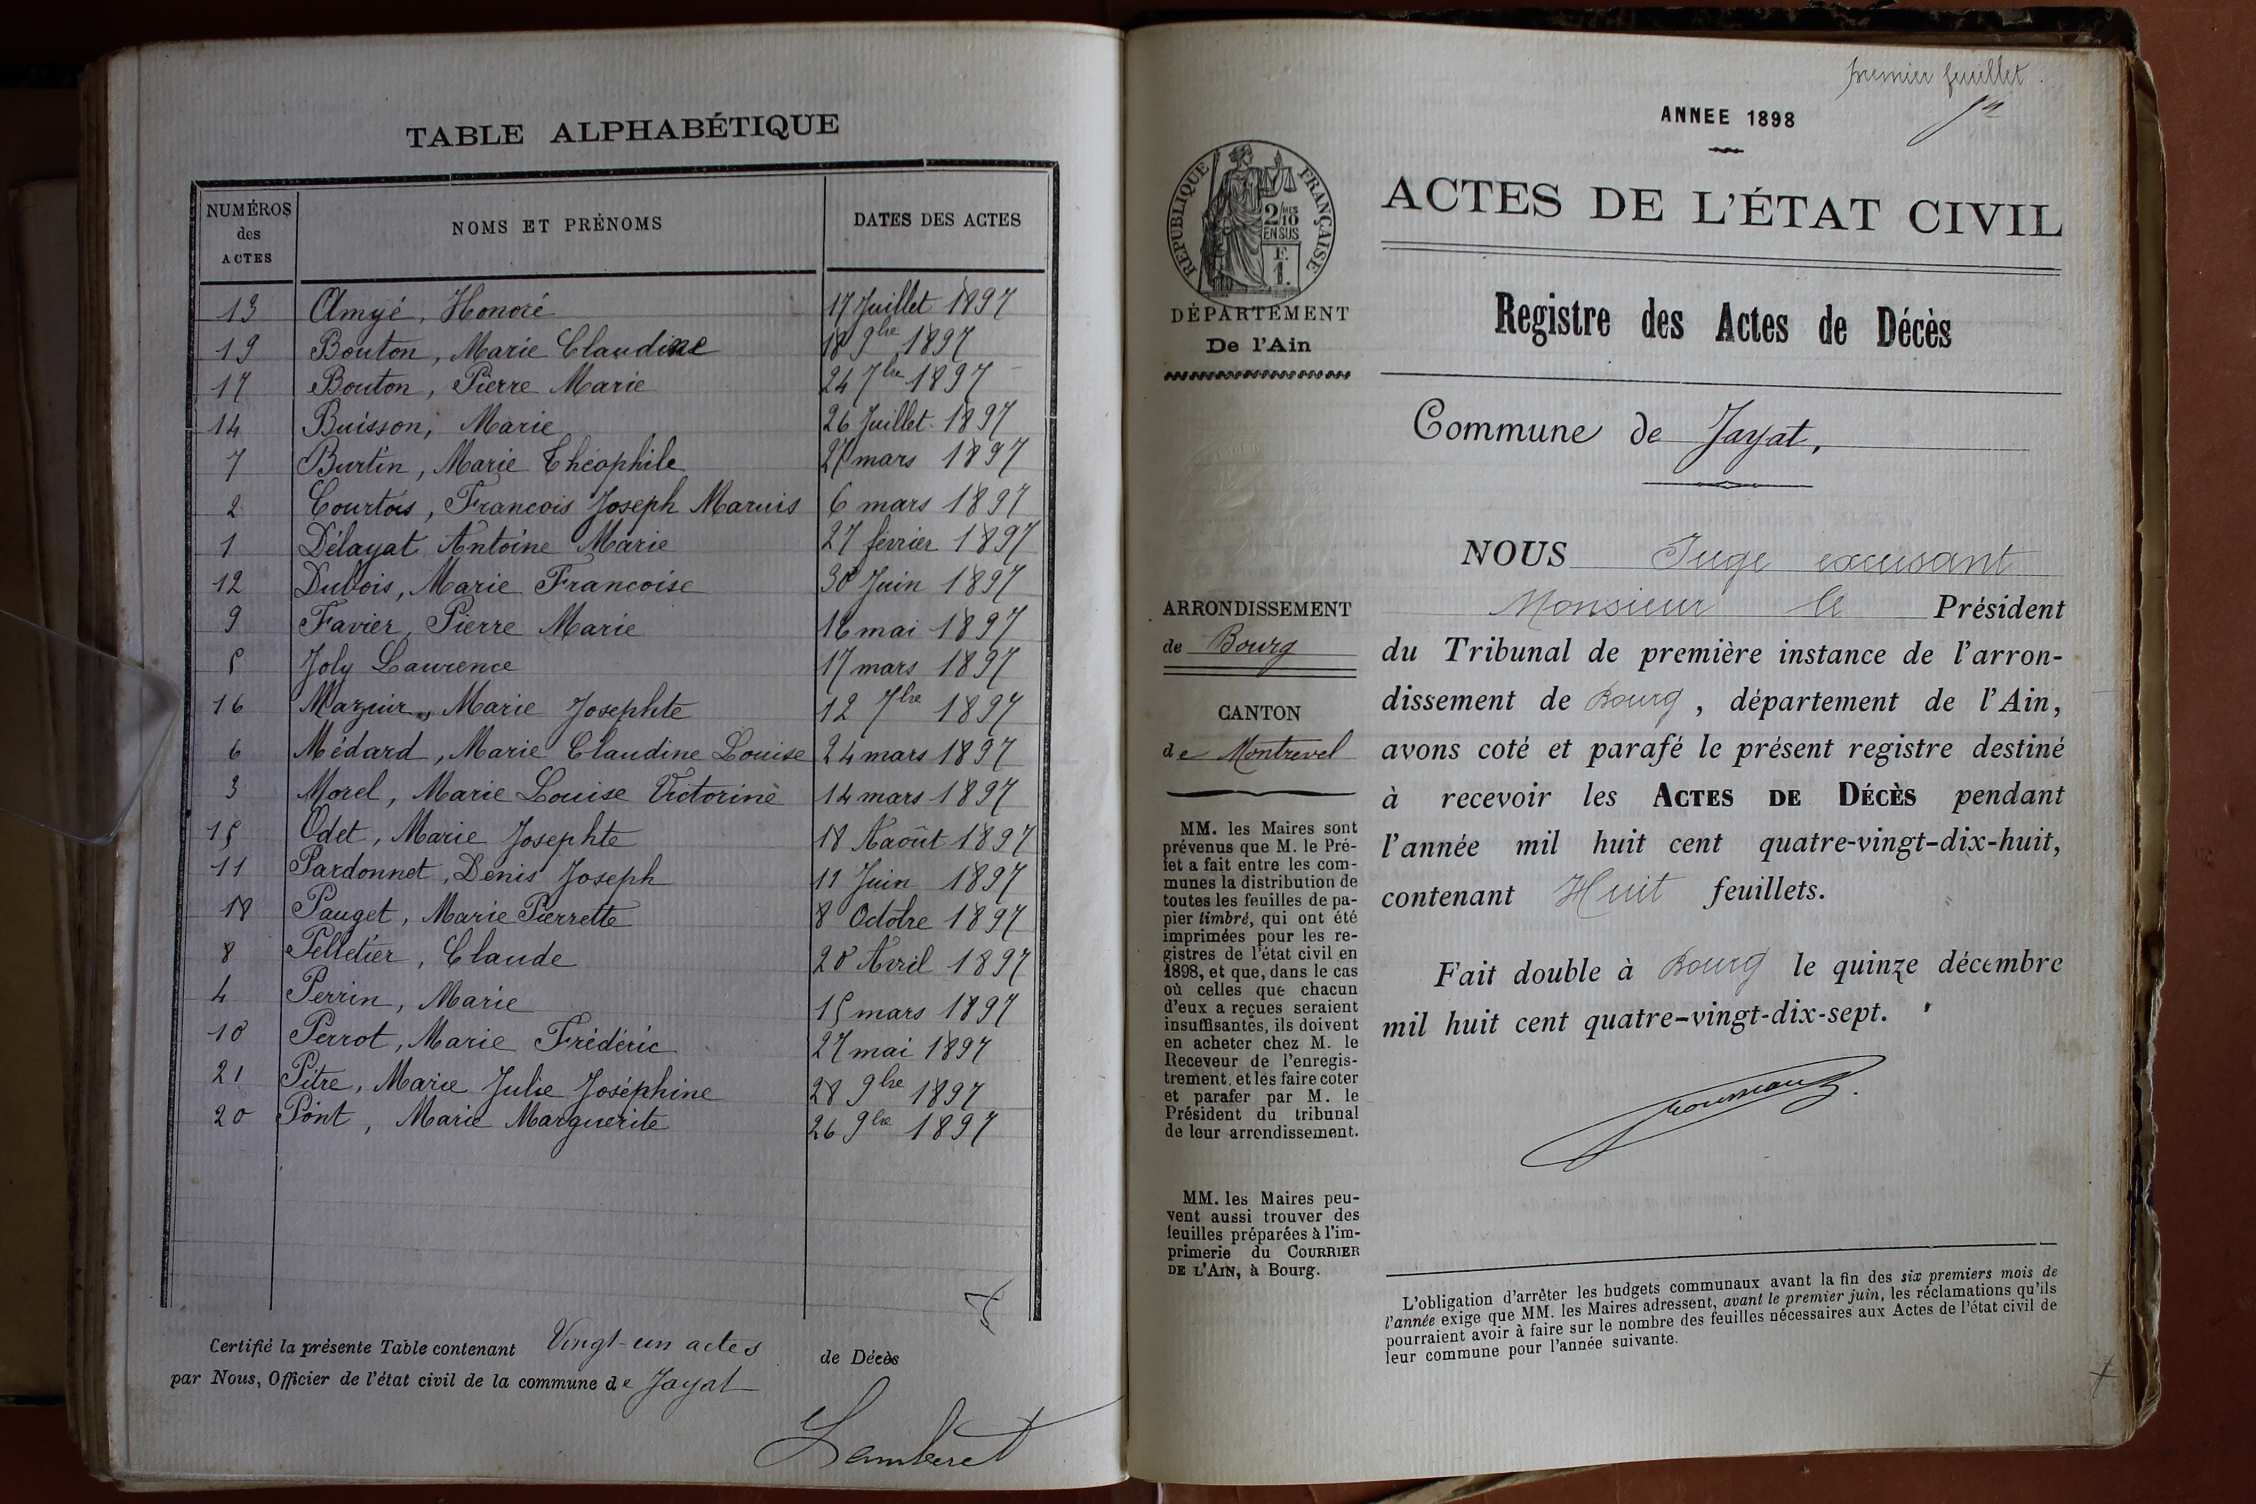 TABLE ALPHABÉTIQUE
NUMÉROS des ACTES NOMS ET PRÉNOMS DATES DES ACTES
13 Amyé, Honoré 17 Juillet 1897
19 Bouton, Marie Claudine 18 9bre 1897
17 Bouton, Pierre Marie 24 7bre 1897
14 Buisson, Marie 26 Juillet 1897
7 Burtin, Marie Théophile 27 mars 1897
2 Courtois, Francois Joseph Maruis 6 mars 1897
1 Délayat Antoine Marie 27 février 1897
12 Dubois, Marie Francoise 30 Juin 1897
9 Favier, Pierre Marie 16 mai 1897
5 Joly Laurence 17 mars 1897
16 Mazuir, Marie Josephte 12 7bre 1897
6 Médard, Marie Claudine Louise 24 mars 1897
3 Morel, Marie Louise Victorine 14 mars 1897
15 Odet, Marie Josephte 18 Aaoût 1897
11 Pardonnet, Denis Joseph 11 Juin 1897
18 Pauget, Marie Pierrette 8 Octobre 1897
8 Pelletier, Claude 20 Avril 1897
4 Perrin, Marie 15 mars 1897
10 Perrot, Marie Frédéric 27 mai 1897
21 Pitre, Marie Julie Joséphine 28 9bre 1897
20 Pont, Marie Marguerite 26 9bre 1897
Certifié la présente Table contenant Vingt-un actes de Décès
par Nous, Officier de l'état civil de la commune de Jayat
Lamberet
premier feuillet.
ANNEE 1898
RÉPUBLIQUE FRANÇAISE
2/10 MES
EN SUS
F.
1.
DÉPARTEMENT
De l'Ain
ARRONDISSEMENT
de Bourg
CANTON
de Montrevel
MM. les Maires sont
prévenus que M. le Pré-
fet a fait entre les com-
munes la distribution de
toutes les feuilles de pa-
pier timbré, qui ont été
imprimées pour les re-
gistres de l'état civil en
1898, et que, dans le cas
où celles que chacun
d'eux a reçues seraient
insuffisantes, ils doivent
en acheter chez M. le
Receveur de l'enregis-
trement, et les faire coter
et parafer par M. le
Président du tribunal
de leur arrondissement.
MM. les Maires peu-
vent aussi trouver des
feuilles préparées à l'im-
primerie du COURRIER
DE L'AIN, à Bourg.
ACTES DE L'ÉTAT CIVIL
Registre des Actes de Décès
Commune de Jayat,
NOUS Juge excusant
Monsieur le Président
du Tribunal de première instance de l'arron-
dissement de Bourg, département de l'Ain,
avons coté et parafé le présent registre destiné
à recevoir les ACTES DE DÉCÈS pendant
l'année mil huit cent quatre-vingt-dix-huit,
contenant Huit feuillets.
Fait double à Bourg le quinze décembre
mil huit cent quatre-vingt-dix-sept.
L'obligation d'arrêter les budgets communaux avant la fin des six premiers mois de
l'année exige que MM. les Maires adressent, avant le premier juin, les réclamations qu'ils
pourraient avoir à faire sur le nombre des feuilles nécessaires aux Actes de l'état civil de
leur commune pour l'année suivante.